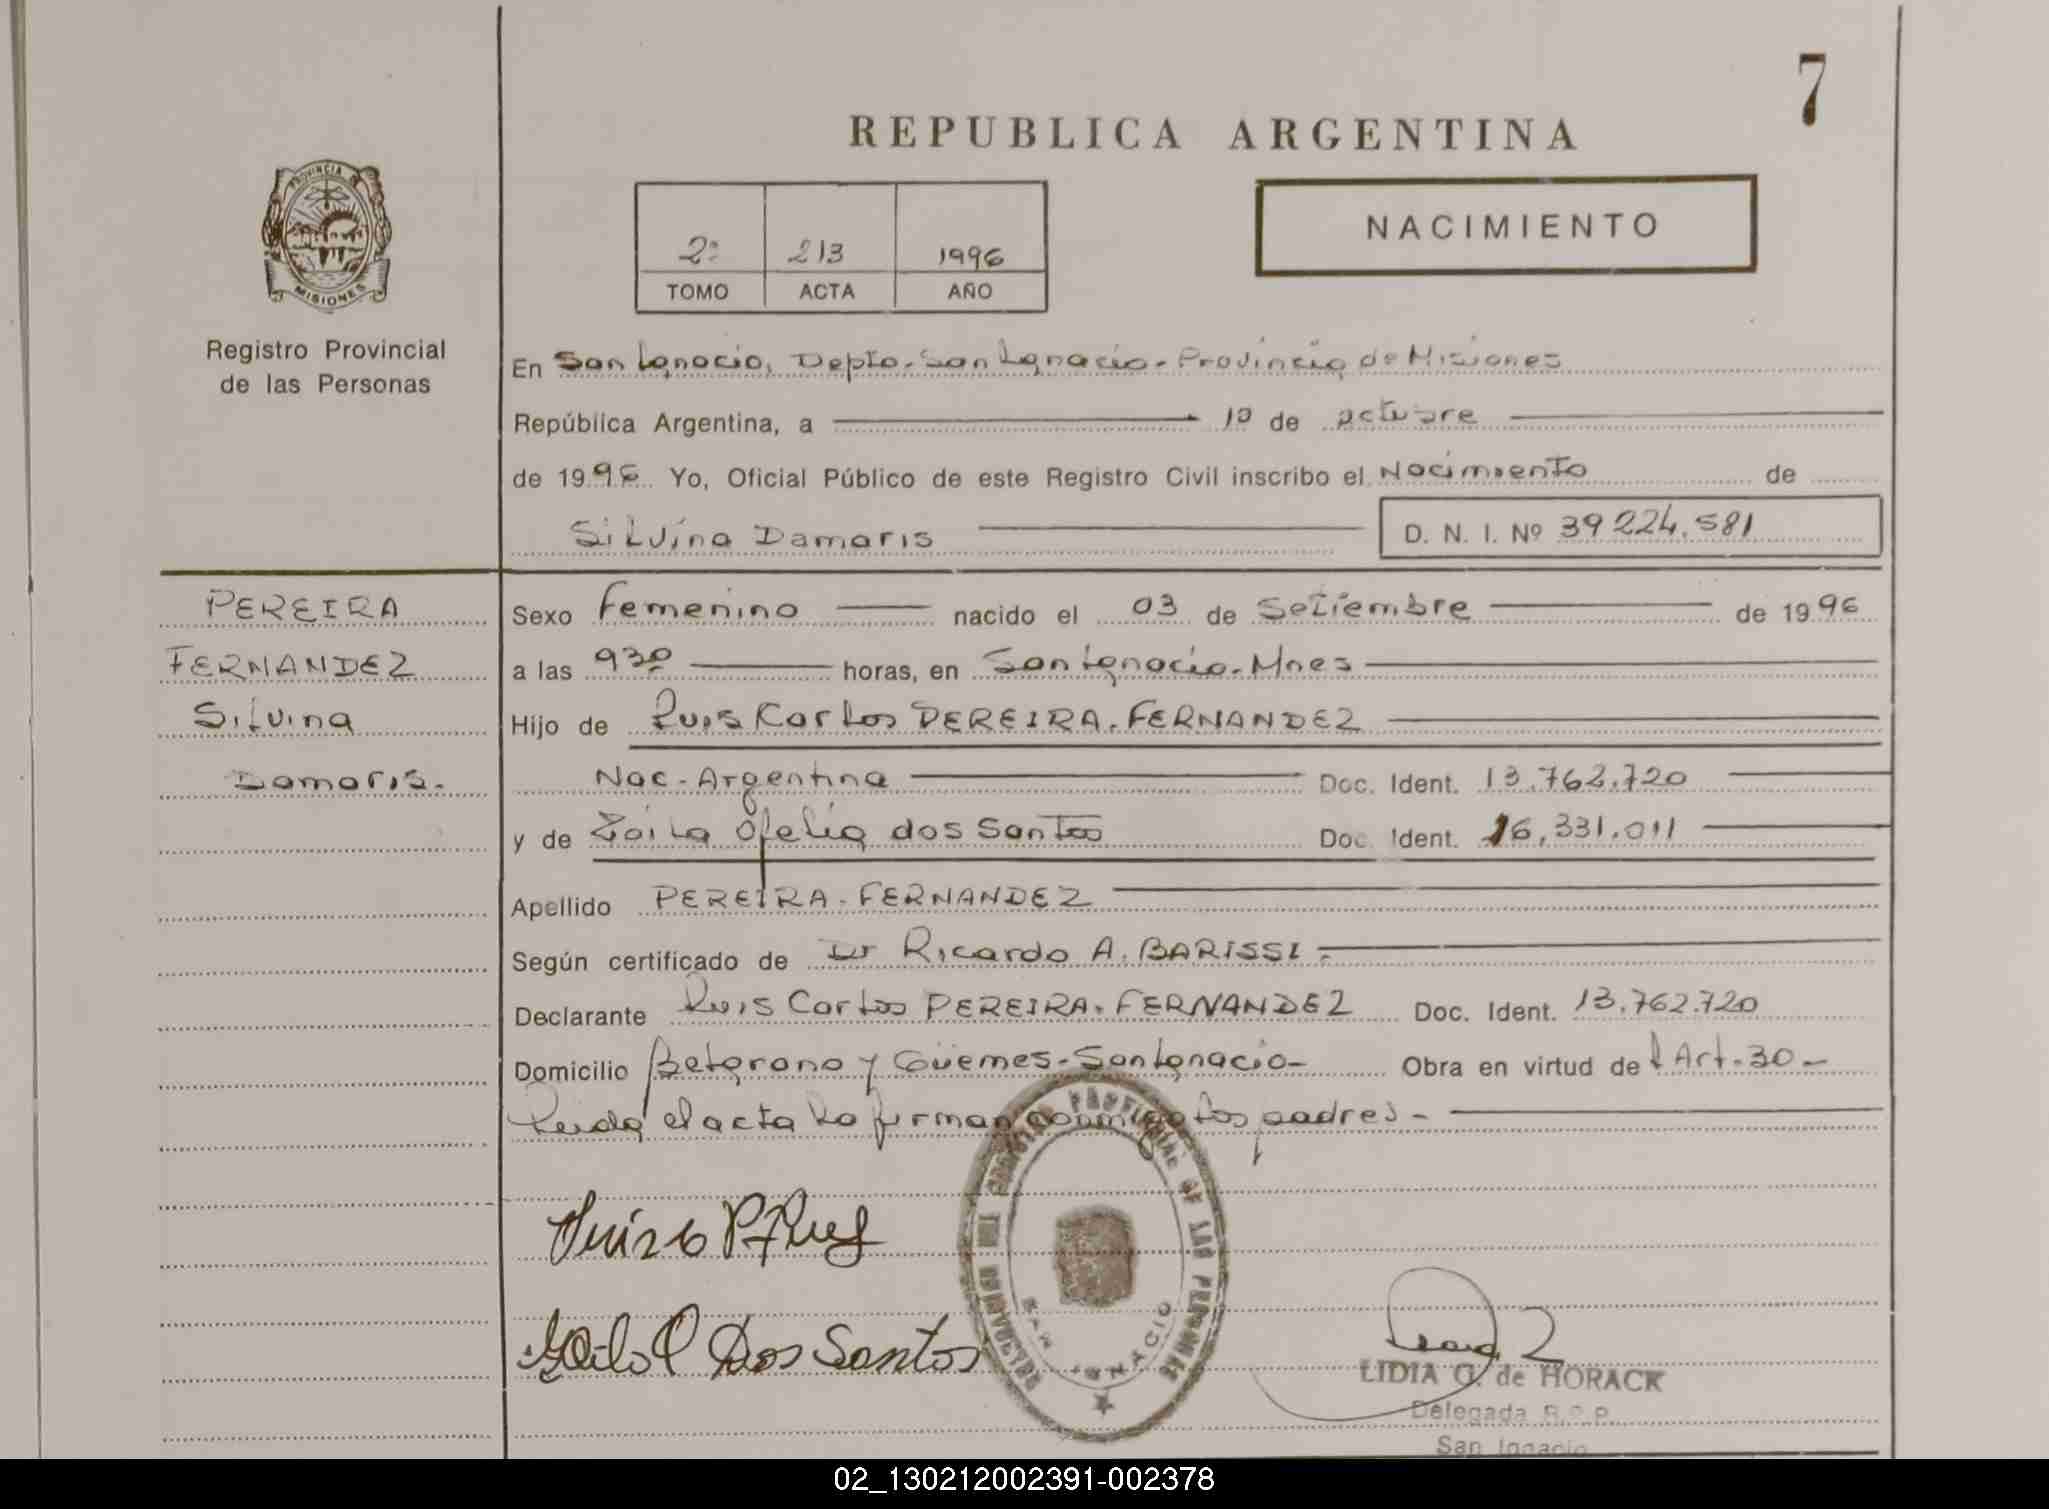 7
REPUBLICA ARGENTINA
PROVINCIA DE
MISIONES
Registro Provincial
de las Personas
2º 213 1996
TOMO ACTA AÑO
NACIMIENTO
En San Ignacio, Depto. San Ignacio - Provincia de Misiones
República Argentina, a 10 de octubre
de 1996 Yo, Oficial Público de este Registro Civil inscribo el Nacimiento de
Silvina Damaris D. N. I. Nº 39224.581
PEREIRA
FERNANDEZ
Silvina
Damaris.
Sexo Femenino nacido el 03 de Setiembre de 1996
a las 930 horas, en San Ignacio - Mnes
Hijo de Luis Carlos PEREIRA. FERNANDEZ
Nac - Argentina Doc. Ident. 13.762.720
y de Zoila Ofelia dos Santos Doc. Ident. 16.331.011
Apellido PEREIRA - FERNANDEZ
Según certificado de Dr Ricardo A. BARISSI.
Declarante Luis Carlos PEREIRA. FERNANDEZ Doc. Ident. 13.762.720
Domicilio Belgrano y Güemes - San Ignacio - Obra en virtud del Art. 30 -
Leida el acta la firman conmigo los padres -
Dos Santos
REGISTRO PROVINCIAL DE LAS PERSONAS
SAN IGNACIO
LIDIA G. de HORACK
Delegada R.P.P.
San Ignacio
02_130212002391-002378